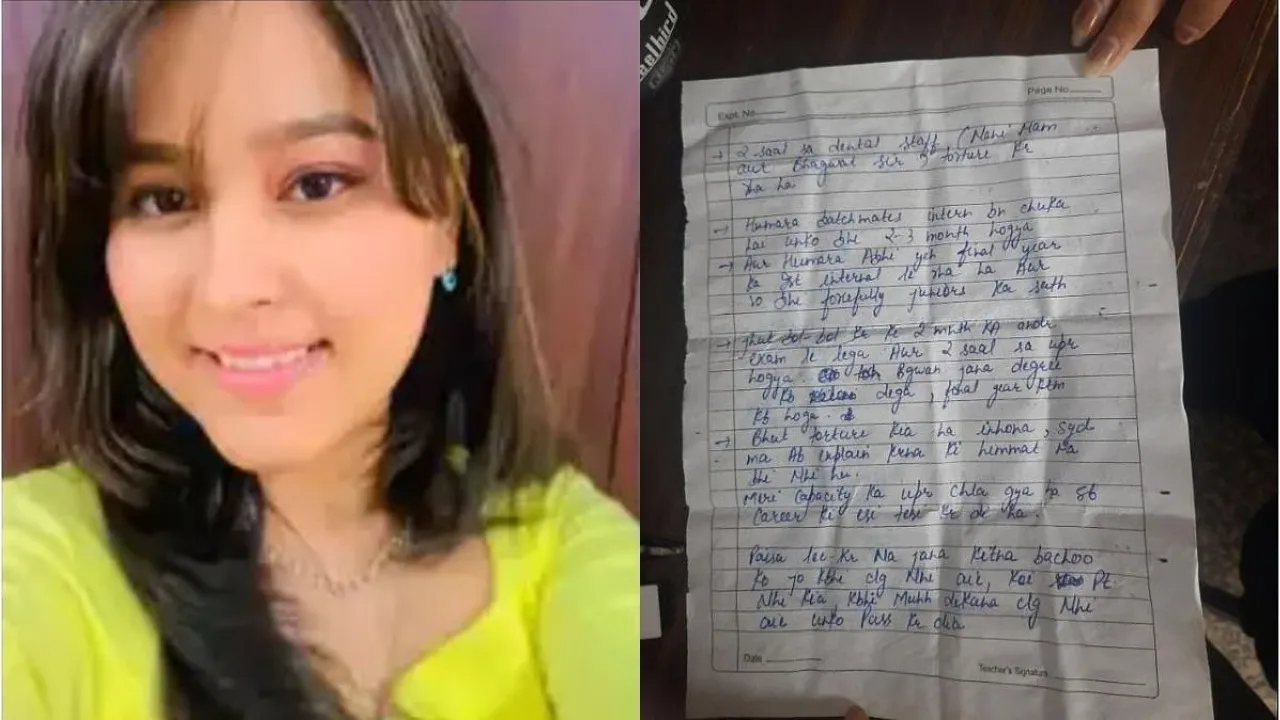 aelbird
Page No.
Expt. No.
→ 2 saal sa dental staff (Mahi Mam
aur Bhagwat sir g torture kr
rha ha
→ Humara batchmates intern bn chuka
hai unko bhe 2-3 month hogya
→ Aur Humara Abhi yeh final year
ka 1st internal le rha ha Aur
vo bhe forcefully juniors ka sath
→ jhut bol-bol kr ke 2 month KA andr
exam le lega Aur 2 saal sa upr
hogya. Bgwan jana degree
kb dega, final year ktm
kb hoga.
→ Bhut torture kia ha inhona, syd
ma Ab explain krna ki himmat ha
bhi Nhi hu.
Meri capacity ka upr chla gya ha sb
Career ki esi tesi kr di ha.
Paisa lee-kr Na jana kitna bachoo
ko jo kbhi clg Nhi aie, koi Pt
Nhi kia kbhi Muhh dikana clg Nhi
aie unko Pass kr dia
Date
Teacher's Signature